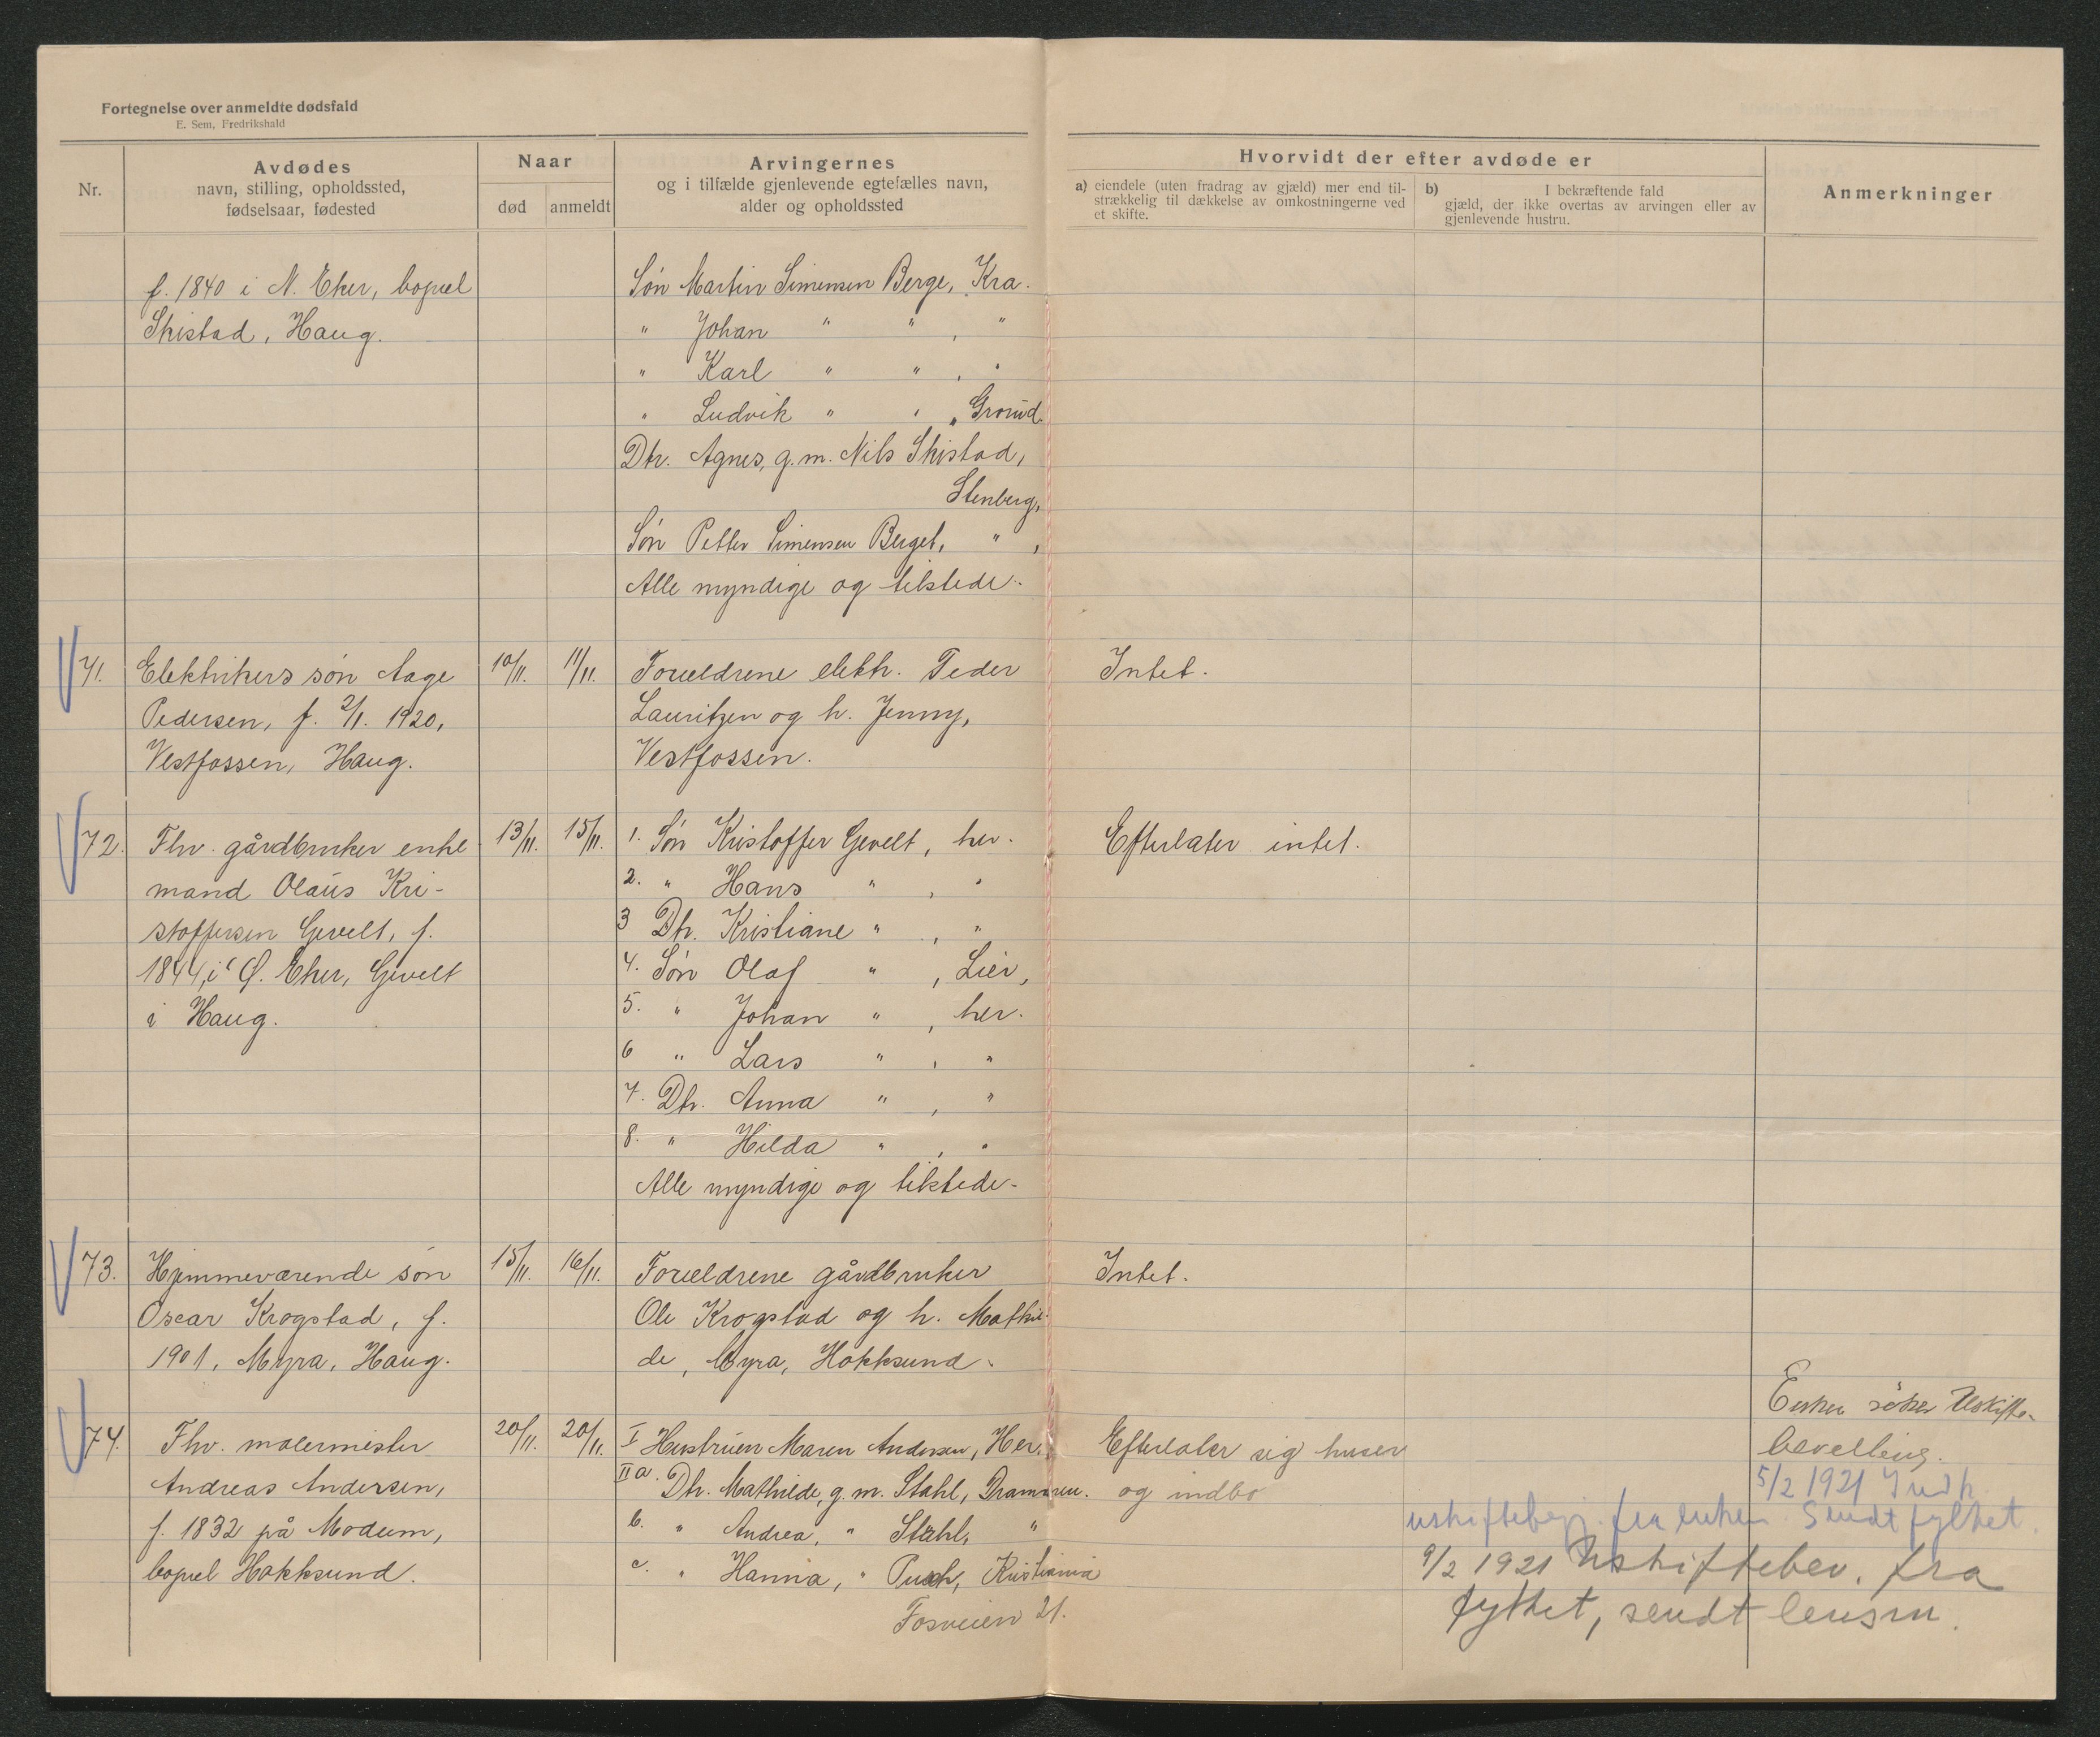 Fortegnelse over anmeldte dødsfald
E. Sem, Fredrikshald
Nr.
Avdødes
navn, stilling, opholdssted,
fødselsaar, fødested
Naar
død
anmeldt
Arvingernes
og i tilfælde gjenlevende egtefælles navn,
alder og opholdssted
Hvorvidt der efter avdøde er
a) eiendele (uten fradrag av gjæld) mer end til-
strækkelig til dækkelse av omkostningerne ved
et skifte.
b) I bekræftende fald
gjæld, der ikke overtas av arvingen eller av
gjenlevende hustru.
Anmerkninger
f. 1840 i N. Eker, bopæl
Skistad, Haug.
Søn Martin Simensen Berge, Kra.
" Johan " " , "
" Karl " " , "
" Ludvik " " , Grorud
Dtr. Agnes, g.m. Nils Skistad,
Stenberg,
Søn Petter Simensen Berget, " ,
Alle myndige og tilstede.
71. Elektrikers søn Aage
Pedersen, f. 2/1. 1920,
Vestfossen, Haug.
10/11. 11/11.
Forældrene elektr. Peder
Lauritzen og h. Jenny,
Vestfossen.
Intet.
72. Fhv. gårdbruker enke
mand Olaus Kri-
stoffersen Gevelt, f.
1844, i Ø. Eker, Gevelt
i Haug.
13/11. 15/11.
1. Søn Kristoffer Gevelt, her.
2. " Hans " , "
3 Dtr. Kristiane " , "
4. Søn Olaf " , Lier,
5. " Johan " , her.
6 " Lars " , "
7. Dtr. Anna " , "
8. " Hilda " , "
Alle myndige og tilstede.
Efterlater intet.
73. Hjemmeværende søn
Oscar Krogstad, f.
1901, Myra, Haug.
15/11. 16/11.
Forældrene gårdbruker
Ole Krogstad og h. Mathil-
de, Myra, Hokksund.
Intet.
74. Fhv. malermester
Andreas Andersen,
f. 1832 på Modum,
bopæl Hokksund.
20/11. 20/11.
I Hustruen Maren Andersen, Her.
IIa. Dtr. Mathilde, g.m. Stahl, Drammen.
b. " Andrea, " Stahl, "
c. " Hanna, " Kristiania
Fosveien 21.
Efterlater sig huser
og indbo
Enken søker Uskifte-
bevelling.
5/2 1921 Indk.
uskiftebegj. fra enken. Sendt fylket.
9/2 1921 Uskiftebev. fra
fylket, sendt lensm.